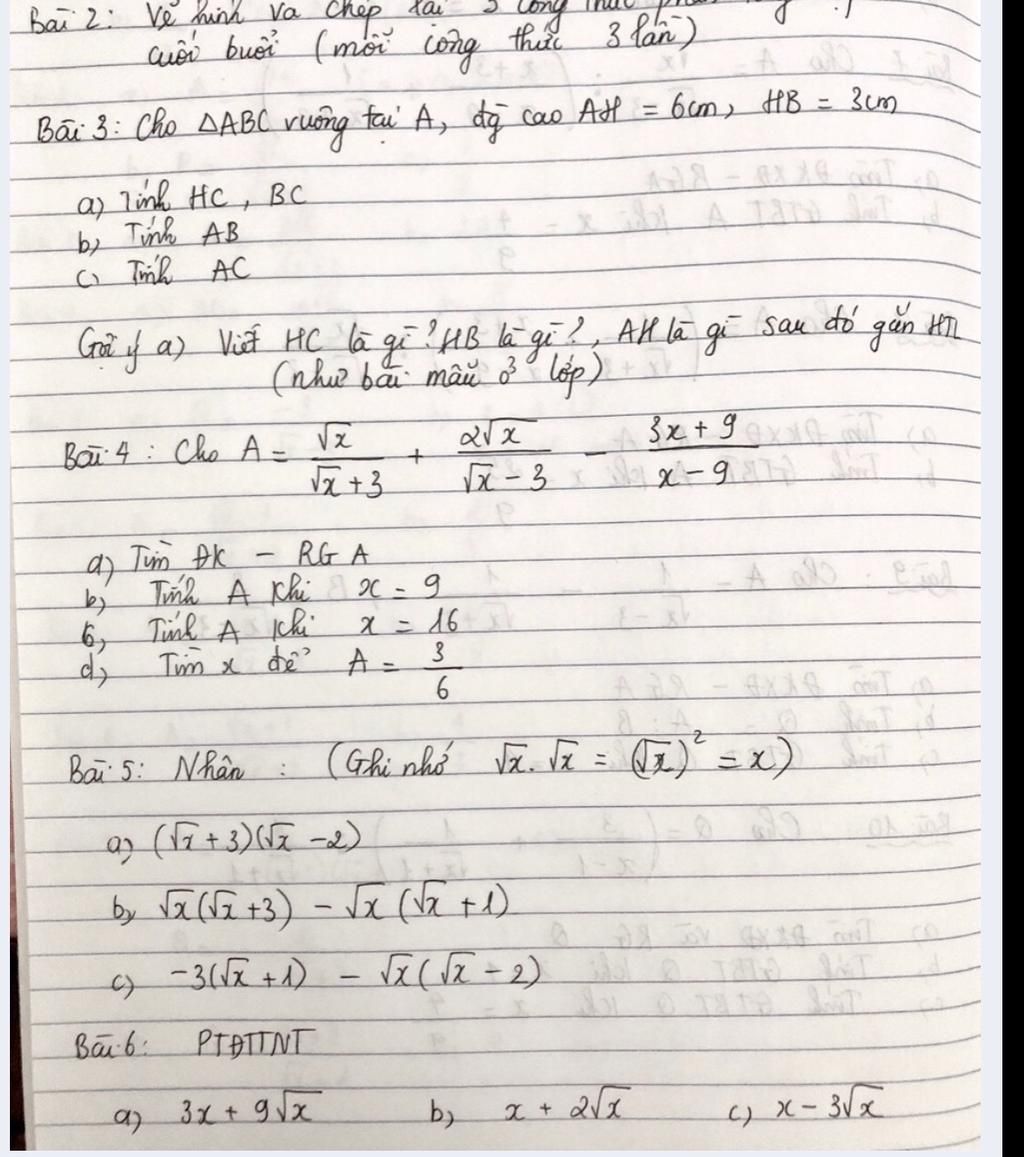 Bài 2: Vẽ hình và chép lại 3 công thức
cuối buổi (mỗi công thức 3 lần)
Bài 3: Cho △ABC vuông tại A, đg cao AH = 6cm, HB = 3cm
a) Tính HC, BC
b, Tính AB
c, Tính AC
Gợi ý a) Viết HC là gì? HB là gì?, AH là gì sau đó gắn HTL
(như bài mẫu ở lớp)
Bài 4: Cho A = √x/(√x + 3) + 2√x/(√x - 3) - (3x + 9)/(x - 9)
a) Tìm ĐK - RG A
b, Tính A khi x = 9
c, Tính A khi x = 16
d, Tìm x để A = 3/6
Bài 5: Nhân: (Ghi nhớ √x.√x = (√x)² = x)
a) (√x + 3)(√x - 2)
b, √x(√x + 3) - √x(√x + 1)
c) -3(√x + 1) - √x(√x - 2)
Bài 6: PTĐTTNT
a) 3x + 9√x b, x + 2√x c, x - 3√x